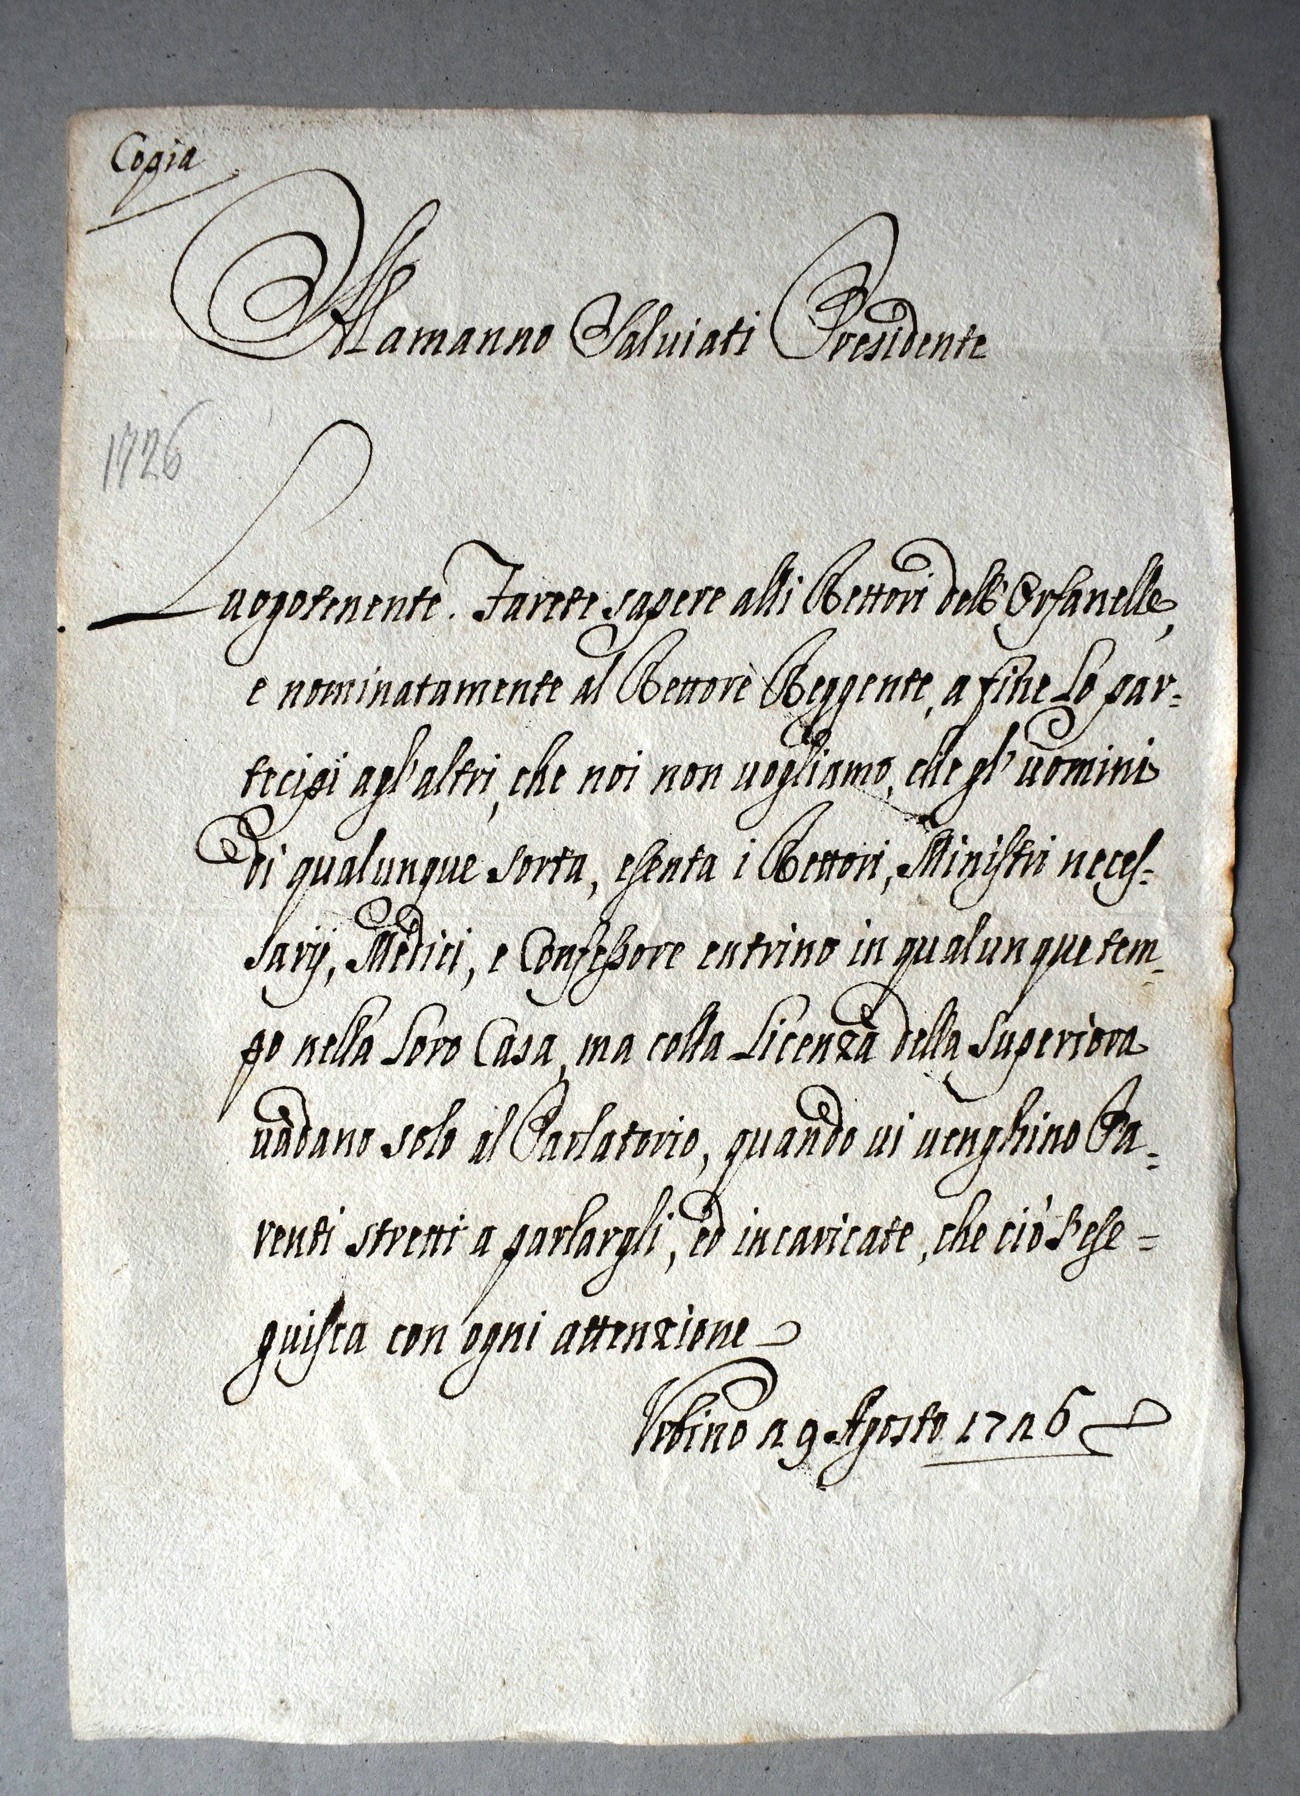 Copia
Alamanno Salviati Presidente
1726
Luogotenente. Farete sapere alli Rettori dell'Orfanelle,
e nominatamente al Rettore Reggente, a fine lo par=
tecipi agl'altri, che noi non uogliamo, che gl'uomini
di qualunque sorta, esenta i Rettori, Ministri neces=
sarij, Medici, e Confessore entrino in qualunque tem=
po nella loro Casa, ma colla Licenza della Superiora
uadano solo al Parlatorio, quando ui uenghino Pa=
renti stretti a parlargli, ed incaricate, che ciò s'ese=
guisca con ogni attenzione
Urbino a 9 Agosto 1726